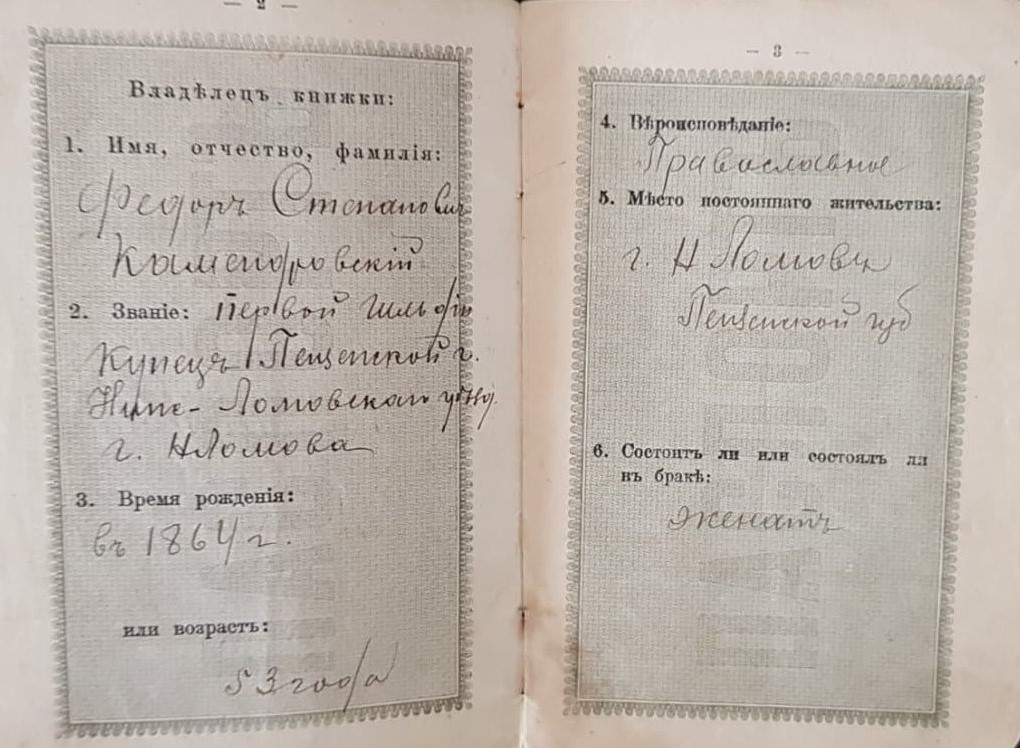 — 2 —
Владѣлецъ книжки:
1. Имя, отчество, фамилія:
Федоръ Степановичъ
Камендровскій
2. Званіе: первой гильдіи
Купецъ Пензенской г.
Ниже-Ломовскаго
г. НЛомова
3. Время рожденія:
въ 1864 г.
или возрастъ:
53 года
— 3 —
4. Вѣроисповѣданіе:
Православное
5. Мѣсто постояннаго жительства:
г. Н Ломовъ
Пензенской губ
6. Состоитъ ли или состоялъ ли
въ бракѣ:
женатъ